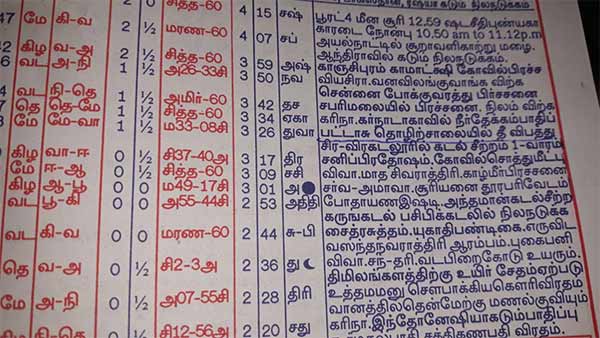 47 மே கி-வ 2 ½ சித்த-60 4 15 சஷ் பூரட்4 மீன சூரி 12.59 ஷடசீதிபுண்யகா
0 மரண-60 4 07 சப் காரடை நோன்பு 10.50 am to 11.12p.m
42 கிழ வ-அ 2 ½ சித்த-60 அயல்நாட்டில் சூறாவளிகாற்று மழை.
வட அ-நி 1 ½ அ26-33சி 3 59 அஷ் ஆந்திராவில் கடும் நிலநடுக்கம்.
3 50 நவ காஞ்சிபுரம் காமாட்க்ஷி கோவில்பிரச்ச
வியசிரா.வனவிலங்குவாங்க விற்க
வட நி-தெ 1 ½ அமிர்-60 3 42 தச சென்னை போக்குவரத்து பிரச்சனை
தெ தெ-மே 1 ½ சித்த-60 3 34 ஏகா சபரிமலையில் பிரச்சனை. நிலம் விற்க
மே மே-வா 1 ½ ம33-08சி 3 26 துவா கரிநா.கர்நாடாகாவில் நீர்தேக்கம்பாதிப்
பட்டாசு தொழிற்சாலையில் தீ விபத்து
கிழ வா-ஈ 0 ½ சி37-40அ 3 17 திர சிர-விரகடலூரில் கடல் சீற்றம் 1-வாரம்
மே ஈ-ஆ 0 ½ சித்த-60 3 09 சசி சனிப்பிரதோஷம்.கோவில்சொத்துமீட்ட
கிழ ஆ-பூ 0 ½ ம49-17சி 3 01 அ விவா.மாத சிவராத்திரி.காழ்மீர்பிரச்சனை
வட பூ-கி 0 ½ அ55-44சி 2 53 அதிதி சர்வ-அமாவா.சூரியனை தூரபரிவேடம்
போதாயணஇஷ்டி.அந்தமான்கடல்சீற்ற
வட கி-வ 0 0 மரண-60 2 44 சு-பி கருங்கடல் பசிபிக்கடலில் நிலநடுக்க
சைத்ரசுத்தம்.யுகாதிபண்டிகை.எருவிட
தெ வ-அ 0 ½ சி2-3அ 2 36 து வஸந்தநவராத்திரி ஆரம்பம்.புகைபனி
விவா.சந்-தரி.வடபிறைகோடு உயரும்.
திமிலங்களத்திற்கு உயிர் சேதம்ஏற்படு
மே அ-நி 0 ½ அ07-55சி 2 28 திரி உத்தமமனு சௌபாக்கியகௌரிவிரதம்
வானத்தில்தென்மேற்கு மணல்குவியும்
கி-தெ 0 ½ சி12-56அ 2 20 சது கரிநா.இந்தோனேஷியாகடும்பாதிப்பு
சக்திகணபதி விரதம்.